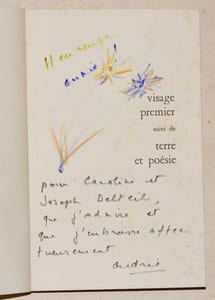 Heureuse
année
visage
premier
suivi de
terre
et poésie
pour Caroline et
Joseph Delteil,
que j'admire et
que j'embrasse affec
tueusement
andrée